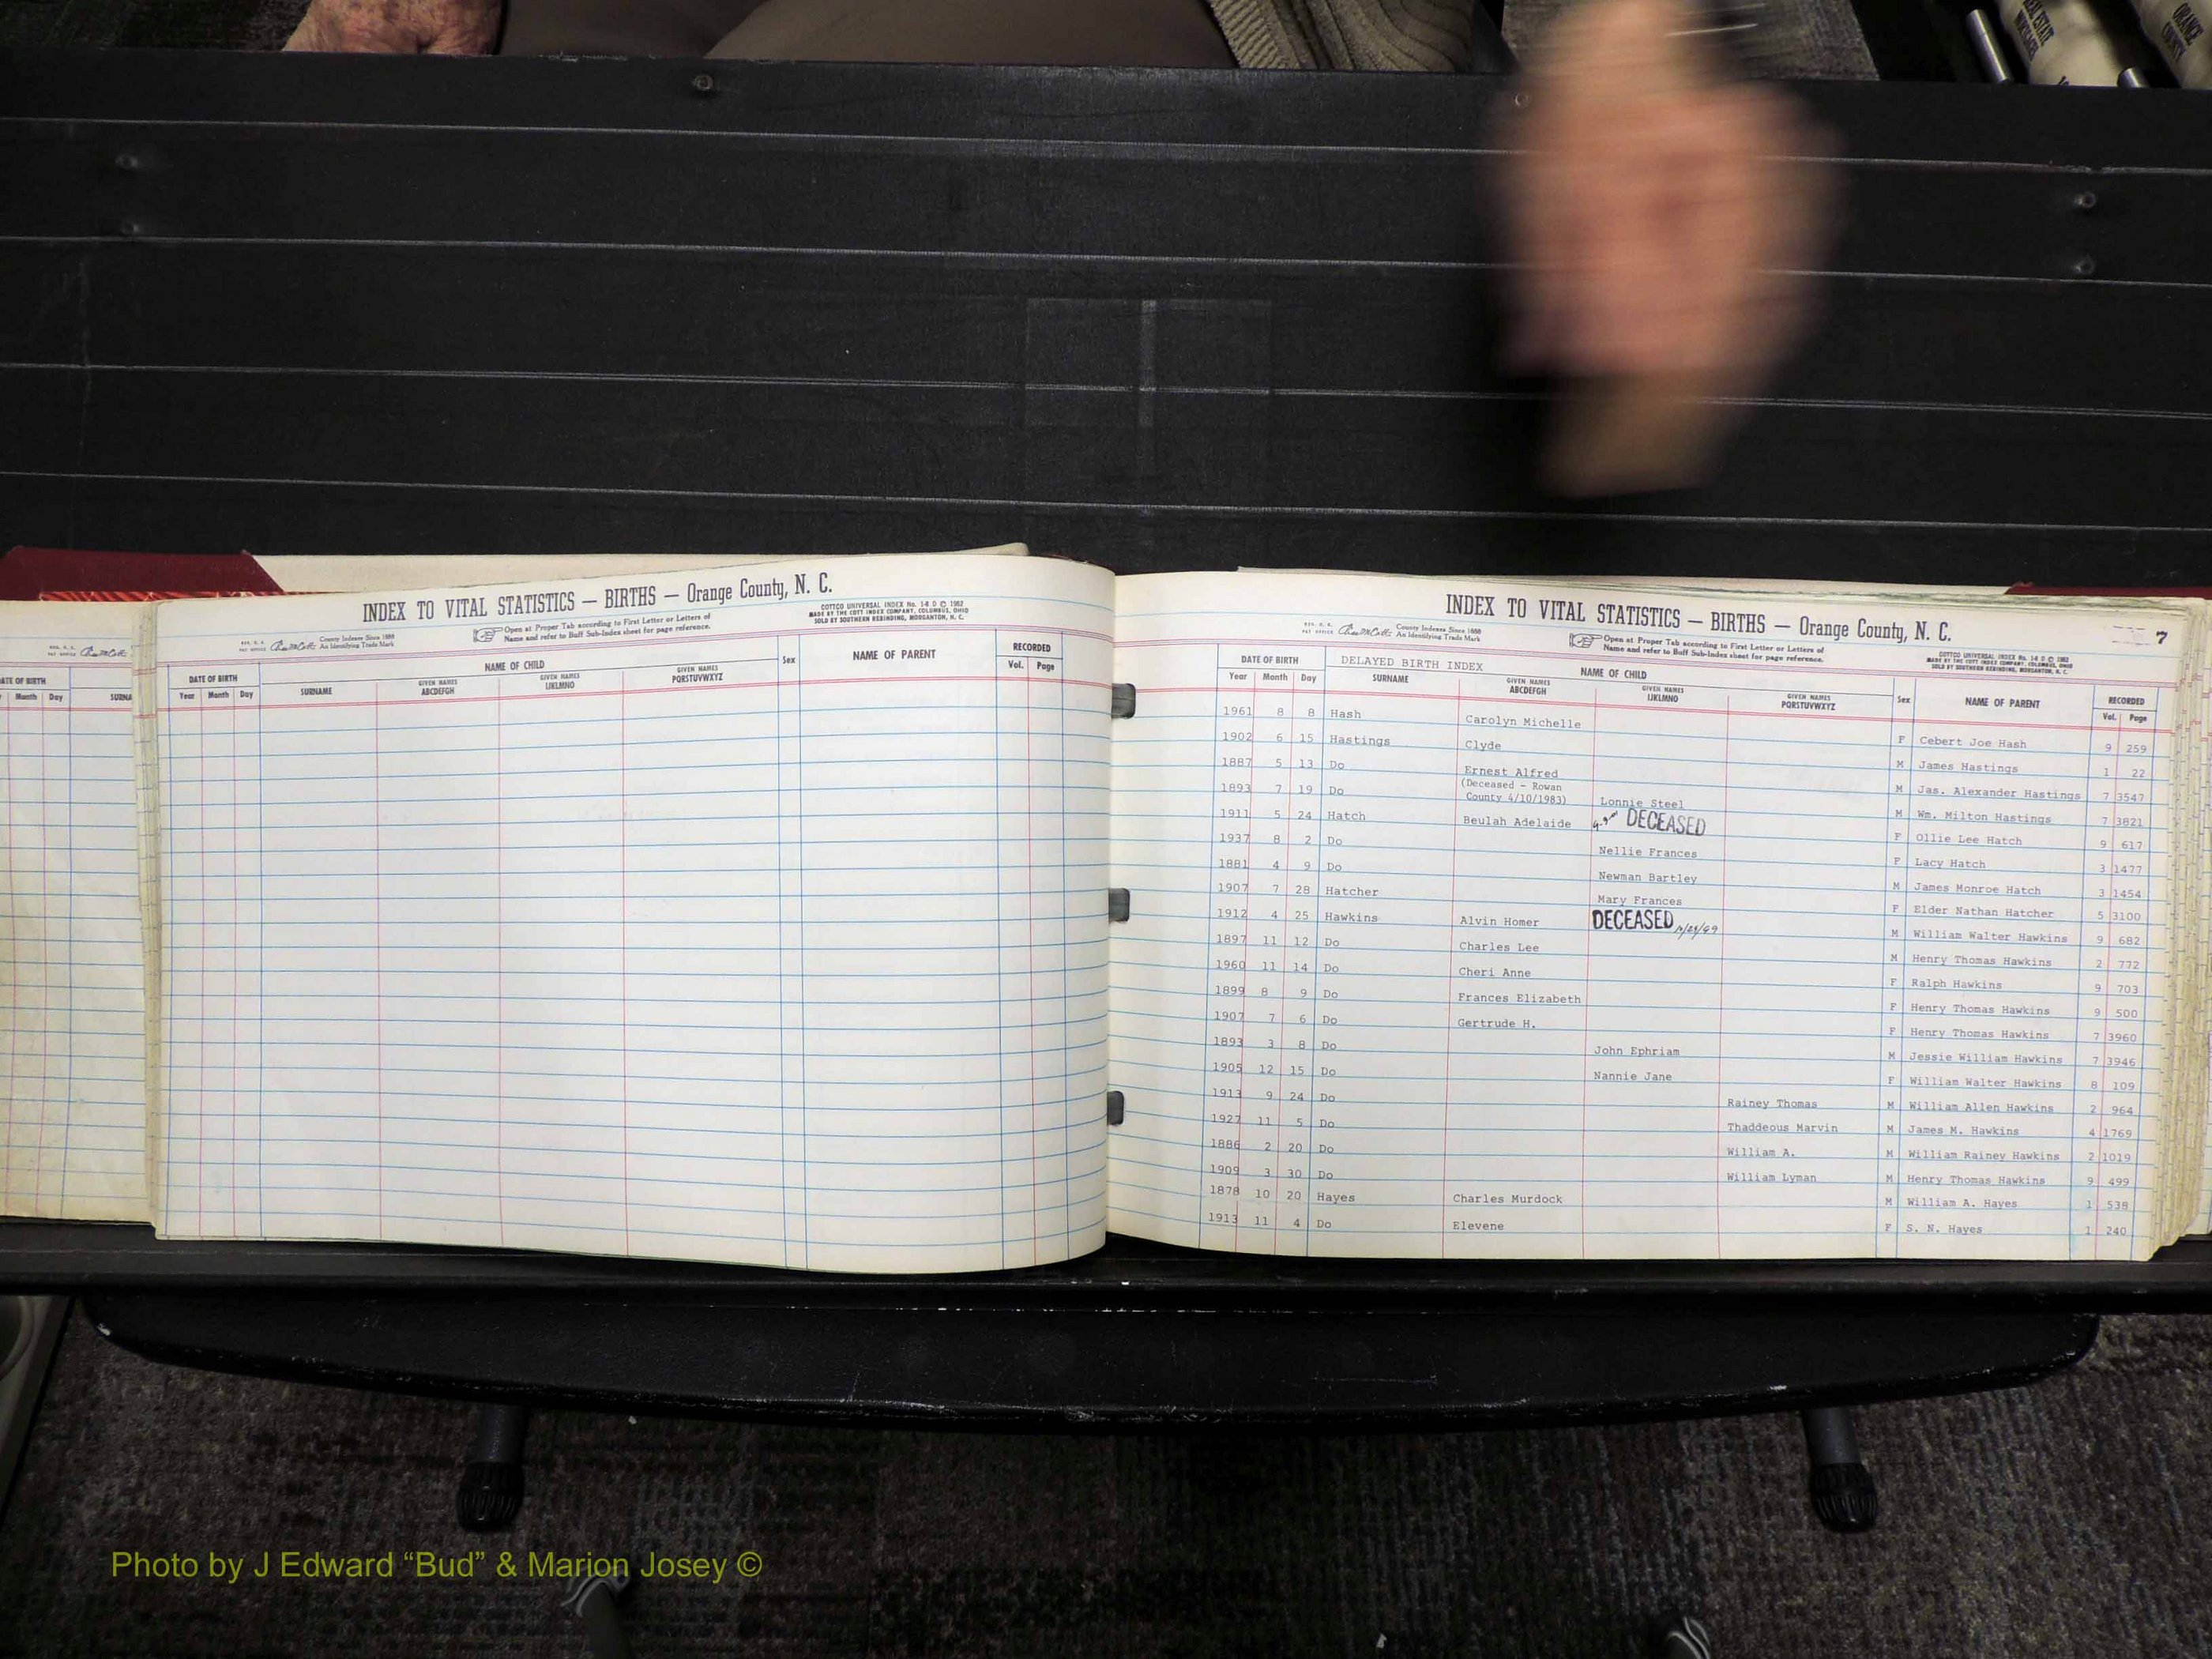 REAL ESTATE
ORANGE
COUNTY
INDEX TO VITAL STATISTICS — BIRTHS — Orange County, N. C.
County Indexes Since 1888
An Identifying Trade Mark
Open at Proper Tab according to First Letter or Letters of
Name and refer to Buff Sub-Index sheet for page reference.
COTTCO UNIVERSAL INDEX No. 1-8 D © 1962
MADE BY THE COTT INDEX COMPANY, COLUMBUS, OHIO
SOLD BY SOUTHERN REBINDING, MORGANTON, N. C.
DATE OF BIRTH NAME OF CHILD Sex NAME OF PARENT RECORDED
Year Month Day SURNAME GIVEN NAMES ABCDEFGH GIVEN NAMES IJKLMNO GIVEN NAMES PQRSTUVWXYZ Vol. Page
ATE OF BIRTH
Month Day SURNA
INDEX TO VITAL STATISTICS — BIRTHS — Orange County, N. C. 7
County Indexes Since 1888
An Identifying Trade Mark
Open at Proper Tab according to First Letter or Letters of
Name and refer to Buff Sub-Index sheet for page reference.
COTTCO UNIVERSAL INDEX No. 1-8 D © 1962
MADE BY THE COTT INDEX COMPANY, COLUMBUS, OHIO
SOLD BY SOUTHERN REBINDING, MORGANTON, N. C.
DATE OF BIRTH DELAYED BIRTH INDEX NAME OF CHILD Sex NAME OF PARENT RECORDED
Year Month Day SURNAME GIVEN NAMES ABCDEFGH GIVEN NAMES IJKLMNO GIVEN NAMES PQRSTUVWXYZ Vol. Page
1961 8 8 Hash Carolyn Michelle F Cebert Joe Hash 9 259
1902 6 15 Hastings Clyde M James Hastings 1 22
1887 5 13 Do Ernest Alfred M Jas. Alexander Hastings 7 3547
(Deceased - Rowan
County 4/10/1983)
1893 7 19 Do Lonnie Steel M Wm. Milton Hastings 7 3821
1911 5 24 Hatch Beulah Adelaide DECEASED F Ollie Lee Hatch 9 617
1937 8 2 Do Nellie Frances F Lacy Hatch 3 1477
1881 4 9 Do Newman Bartley M James Monroe Hatch 3 1454
1907 7 28 Hatcher Mary Frances F Elder Nathan Hatcher 5 3100
1912 4 25 Hawkins Alvin Homer DECEASED M William Walter Hawkins 9 682
1897 11 12 Do Charles Lee M Henry Thomas Hawkins 2 772
1960 11 14 Do Cheri Anne F Ralph Hawkins 9 703
1899 8 9 Do Frances Elizabeth F Henry Thomas Hawkins 9 500
1907 7 6 Do Gertrude H. F Henry Thomas Hawkins 7 3960
1893 3 8 Do John Ephriam M Jessie William Hawkins 7 3946
1905 12 15 Do Nannie Jane F William Walter Hawkins 8 109
1913 9 24 Do Rainey Thomas M William Allen Hawkins 2 964
1927 11 5 Do Thaddeous Marvin M James M. Hawkins 4 1769
1886 2 20 Do William A. M William Rainey Hawkins 2 1019
1909 3 30 Do William Lyman M Henry Thomas Hawkins 9 499
1878 10 20 Hayes Charles Murdock M William A. Hayes 1 538
1913 11 4 Do Elevene F S. N. Hayes 1 240
Photo by J Edward “Bud” & Marion Josey ©